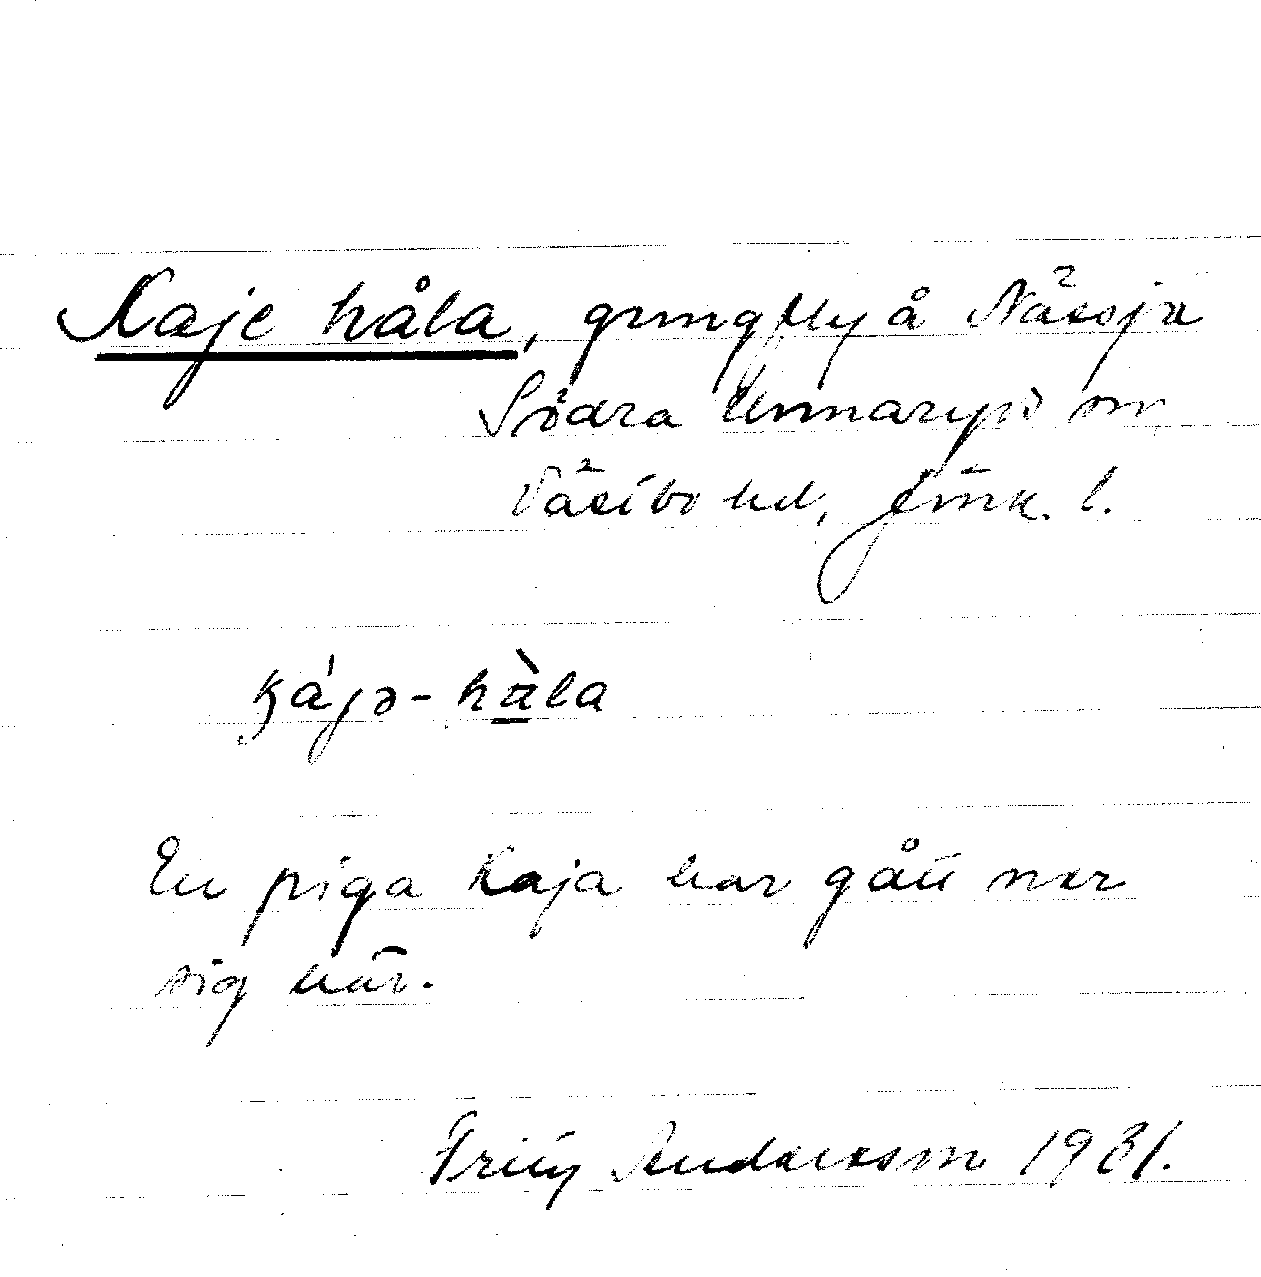 Kaje håla, gungfly å Nässja
Södra Unnaryds sn
Västbo hd, Jönk. l.
kájə-hàla
En piga Kaja har gått ner
sig här.
Fritz Andersson 1931.